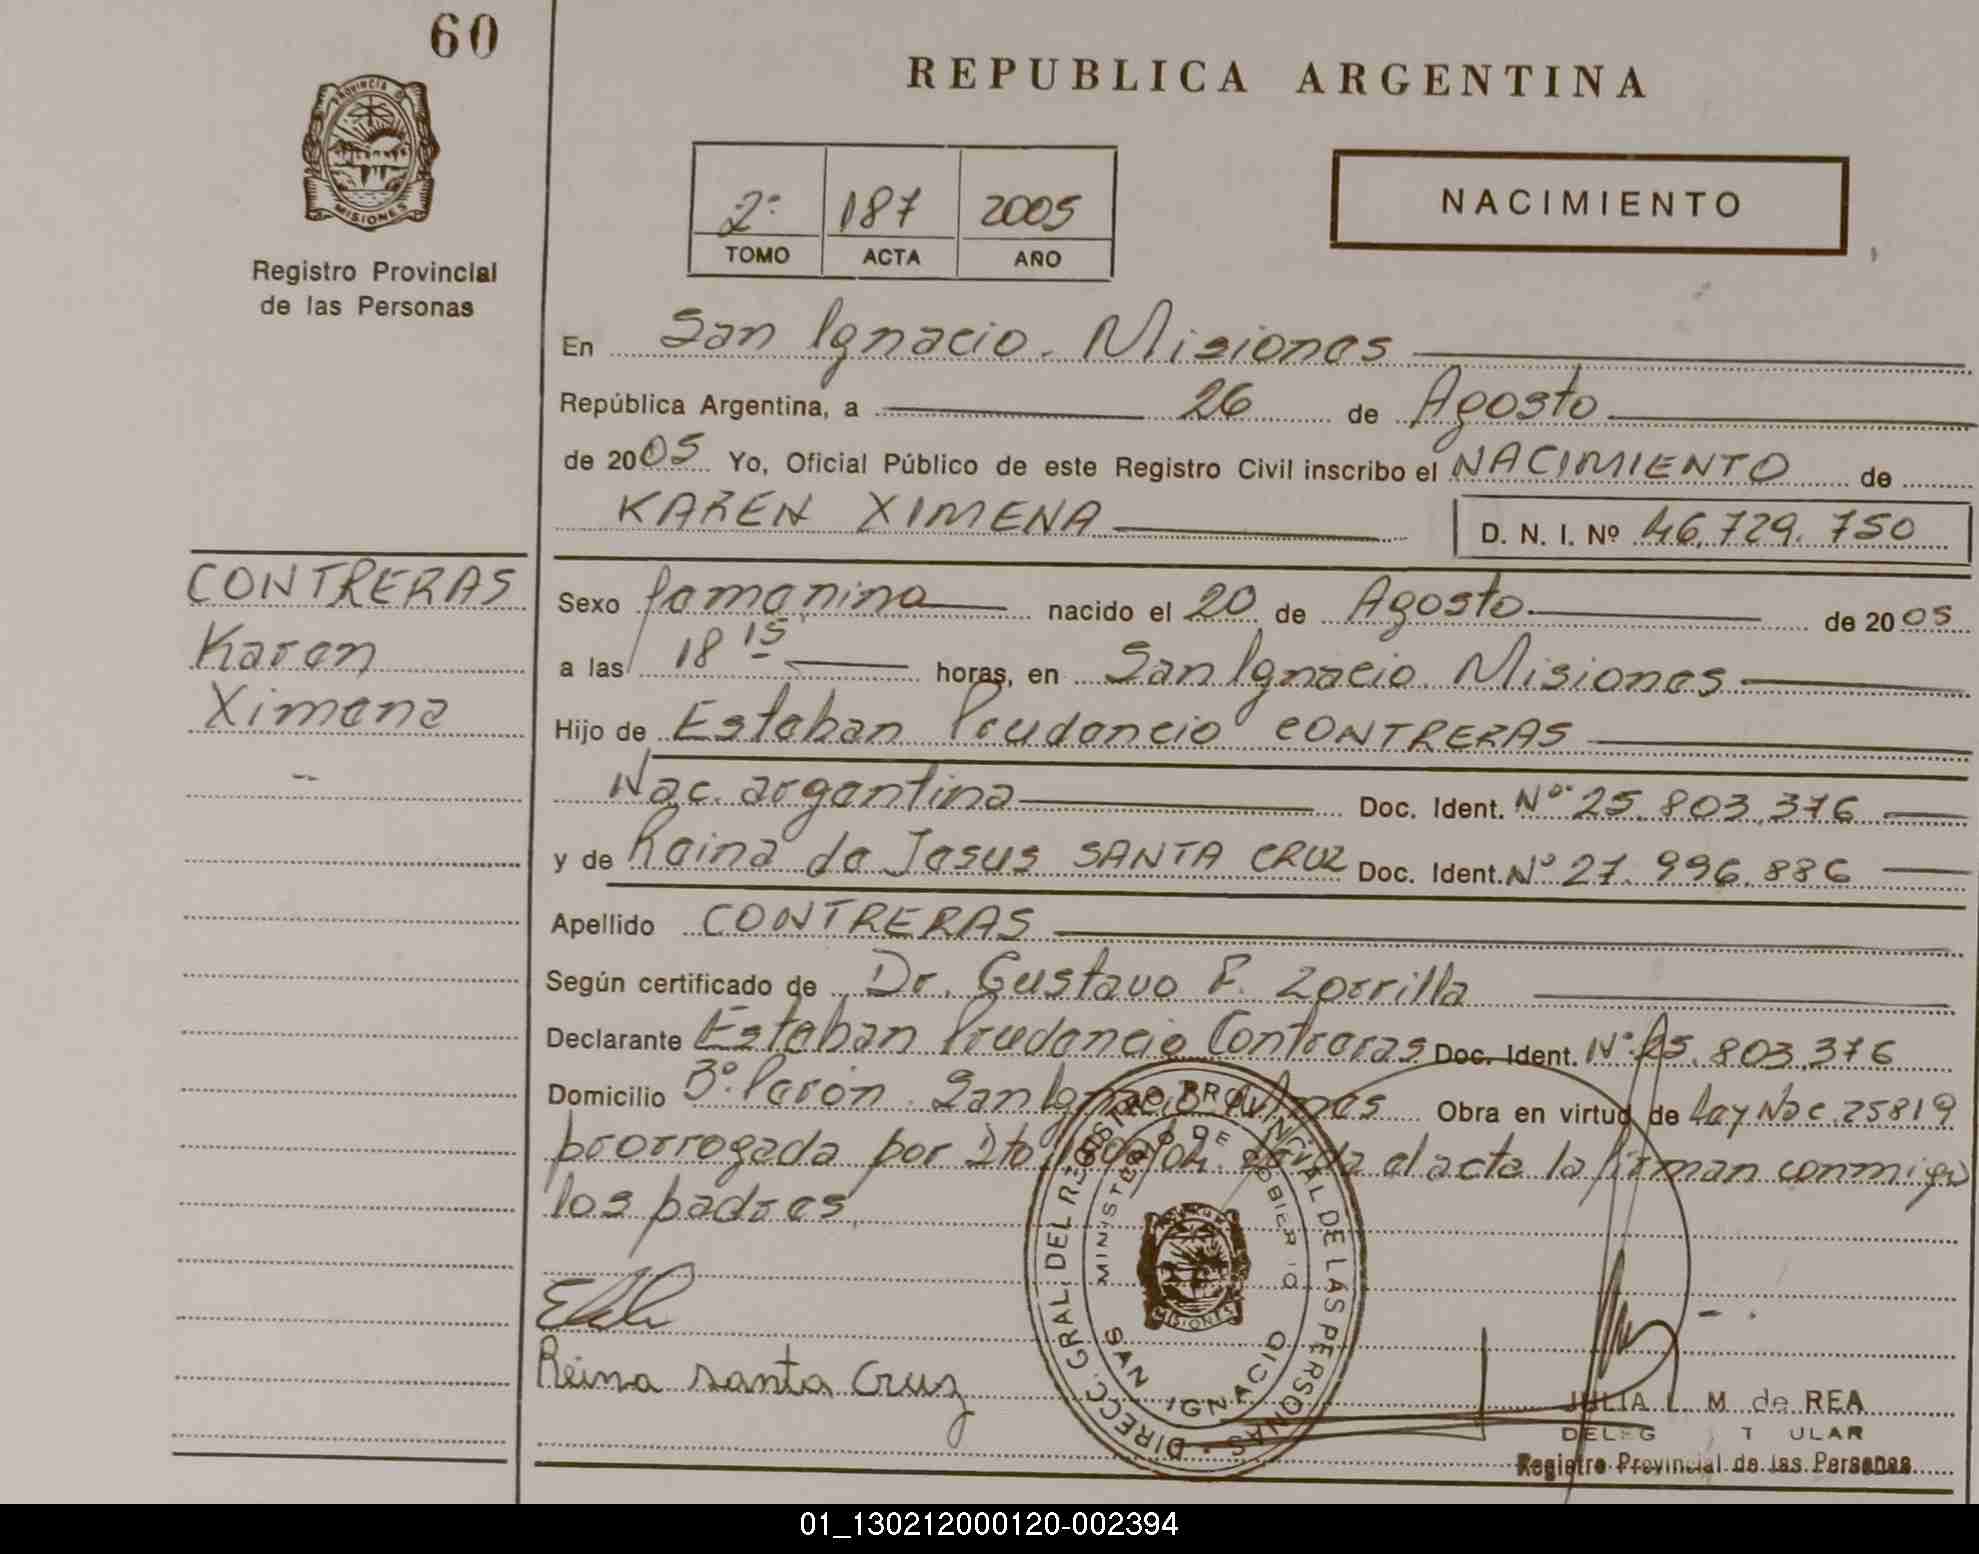 60
REPUBLICA ARGENTINA
PROVINCIA D
MISIONES
Registro Provincial
de las Personas
2º 187 2005
TOMO ACTA AÑO
NACIMIENTO
En San Ignacio. Misiones
República Argentina, a 26 de Agosto
de 2005 Yo, Oficial Público de este Registro Civil inscribo el NACIMIENTO de
KAREN XIMENA D. N. I. Nº 46.729.750
CONTRERAS
Karen
Ximena
Sexo femenina nacido el 20 de Agosto de 2005
a las 18 15 horas, en San Ignacio Misiones
Hijo de Esteban Prudencio CONTRERAS
Nac. argentina Doc. Ident. Nº 25.803.376
y de Reina de Jesus SANTA CRUZ Doc. Ident. Nº 27.996.886
Apellido CONTRERAS
Según certificado de Dr. Gustavo F. Zorrilla
Declarante Esteban Prudencio Contreras Doc. Ident. Nº 25.803.376
Domicilio 3º Perón. San Ignacio Obra en virtud de Ley Nac. 25819
prorrogada por Dto el acta la firman conmigo
los padres,
DIRECC. GRAL. DEL REGISTRO PROVINCIAL DE LAS PERSONAS
MINISTERIO DE GOBIERNO
MISIONES
SAN IGNACIO
Reina santa Cruz
JULIA L. M de REA
DELEG T ULAR
Registro Provincial de las Personas
01_130212000120-002394